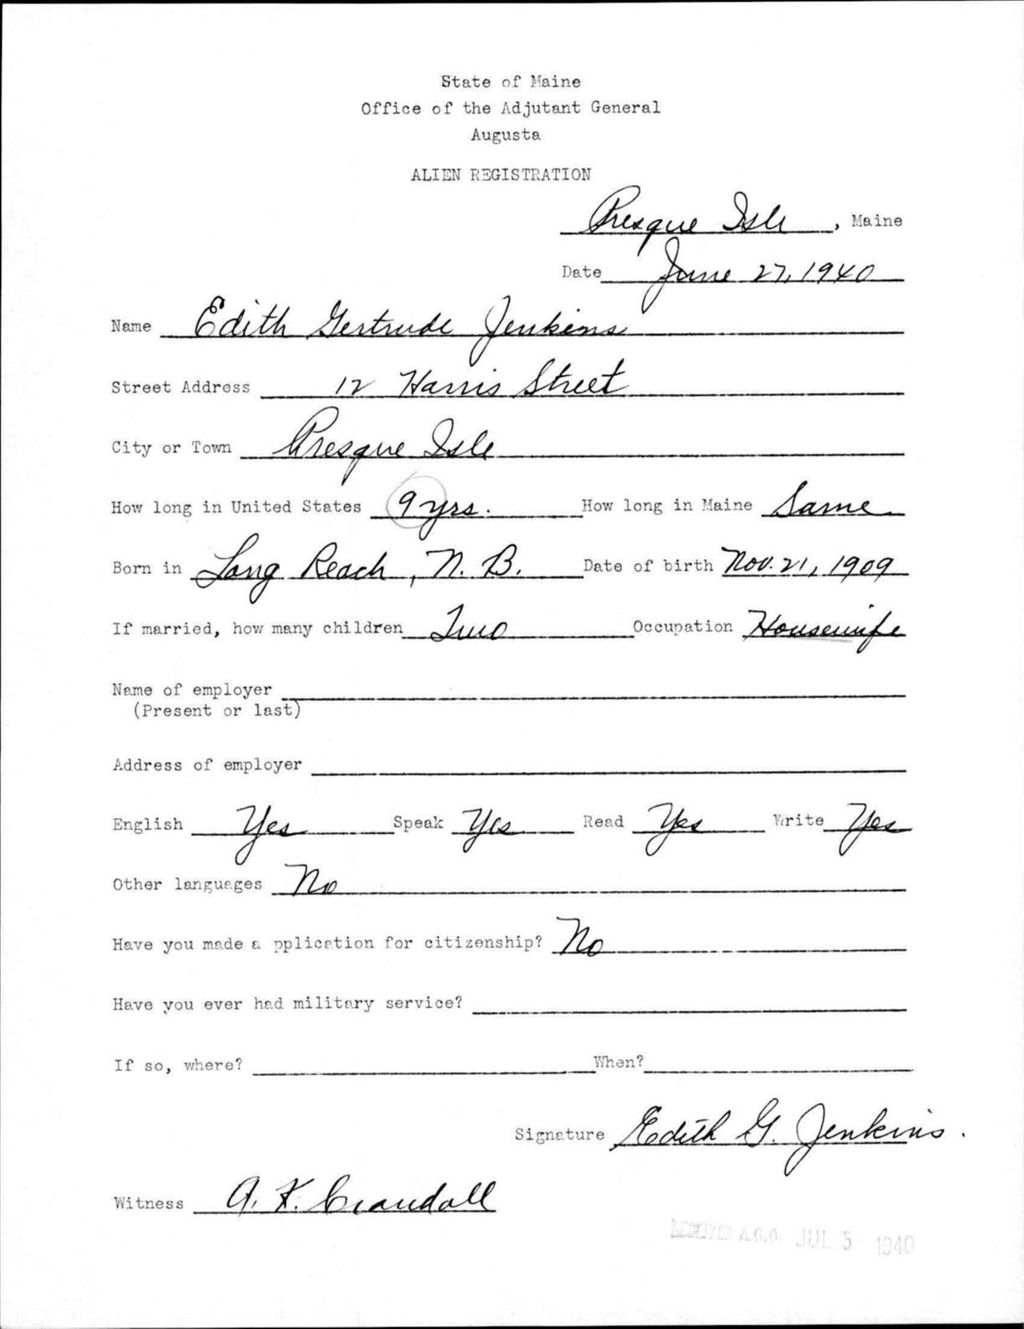 State of Maine
Office of the Adjutant General
Augusta
ALIEN REGISTRATION
Presque Isle, Maine
Date June 27, 1940
Name Edith Gertrude Jenkins
Street Address 12 Harris Street
City or Town Presque Isle
How long in United States 9 yrs. How long in Maine Same
Born in Long Reach, N. B. Date of birth Nov. 21, 1909
If married, how many children Two Occupation Housewife
Name of employer
(Present or last)
Address of employer
English Yes Speak Yes Read Yes Write Yes
Other languages No
Have you made a pplication for citizenship? No
Have you ever had military service?
If so, where? When?
Signature Edith G. Jenkins.
Witness A. K. Crandall
A.G.O. JUL 5 1940